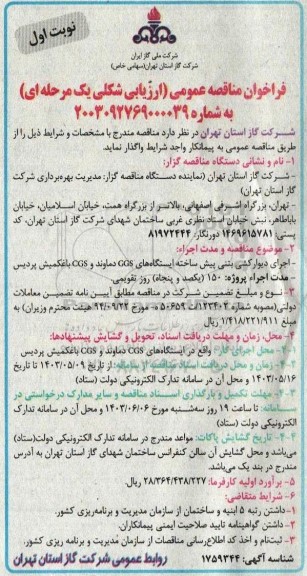 نوبت اول
شرکت ملی گاز ایران
شرکت گاز استان تهران(سهامی خاص)
فراخوان مناقصه عمومی (ارزیابی شکلی یک مرحله ای)
به شماره ۲۰۰۳۰۹۲۷۶۹۰۰۰۰۳۹
شرکت گاز استان تهران در نظر دارد مناقصه مندرج با مشخصات و شرایط ذیل را از
طریق مناقصه عمومی به پیمانکار واجد شرایط واگذار نماید.
۱- نام و نشانی دستگاه مناقصه گزار:
- شرکت گاز استان تهران (نماینده دستگاه مناقصه گزار: مدیریت بهره‌برداری شرکت
گاز استان تهران)
- تهران، بزرگراه اشرفی اصفهانی، بالاتر از بزرگراه همت، خیابان اسلامیان، خیابان
باباطاهر، نبش خیابان استاد نظری غربی ساختمان شهدای شرکت گاز استان تهران، کد
پستی: ۱۴۶۹۶۱۵۷۸۱ دورنگار: ۸۱۹۷۲۴۴۴
۲- موضوع مناقصه و مدت اجراء:
- اجرای دیوارکشی بتنی پیش ساخته ایستگاه‌های CGS دماوند و CGS باغکمیش پردیس
- مدت اجراء پروژه: ۱۵۰ (یکصد و پنجاه) روز تقویمی.
۳- نوع و مبلغ تضمین شرکت در مناقصه مطابق آیین نامه تضمین معاملات
دولتی(مصوبه شماره ۱۲۳۴۰۲/ت۵۰۶۵۹ ه- مورخ ۹۴/۰۹/۲۲ هیئت محترم وزیران) به
مبلغ ۱/۴۱۸/۲۲۱/۹۱۱ ریال
۴- محل، زمان و مهلت دریافت اسناد، تحویل و گشایش پیشنهادها:
۴-۱- محل اجرای کار: واقع در ایستگاه‌های CGS دماوند و CGS باغکمیش پردیس
۴-۲- زمان و محل دریافت اسناد مناقصه از سامانه: از تاریخ ۱۴۰۳/۰۵/۰۹ تا تاریخ
۱۴۰۳/۰۵/۱۶ و محل آن در سامانه تدارک الکترونیکی دولت (ستاد)
۴-۳- مهلت تکمیل و بارگذاری اسناد مناقصه و سایر مدارک درخواستی در
سامانه: تا ساعت ۱۹ روز سه‌شنبه مورخ ۱۴۰۳/۰۶/۰۶ و محل آن در سامانه تدارک
الکترونیکی دولت (ستاد)
۴-۴- تاریخ گشایش پاکات: مواعد مندرج در سامانه تدارک الکترونیکی دولت(ستاد)
می‌باشد و محل گشایش آن سالن کنفرانس ساختمان شهدای گاز استان تهران به آدرس
مندرج در بند یک می‌باشد.
۵- برآورد اولیه کارفرما: ۲۸/۳۶۴/۴۳۸/۲۲۷ ریال.
۶- شرایط متقاضی:
۱- داشتن رتبه ۵ ابنیه و ساختمان از سازمان مدیریت و برنامه‌ریزی کشور.
۲- داشتن گواهینامه تایید صلاحیت ایمنی پیمانکاران.
۳- ثبت‌نام و اخذ کد اطلاع‌رسانی مناقصات از سازمان مدیریت و برنامه ریزی کشور.
شناسه آگهی: ۱۷۵۹۳۴۴ روابط عمومی شرکت گاز استان تهران